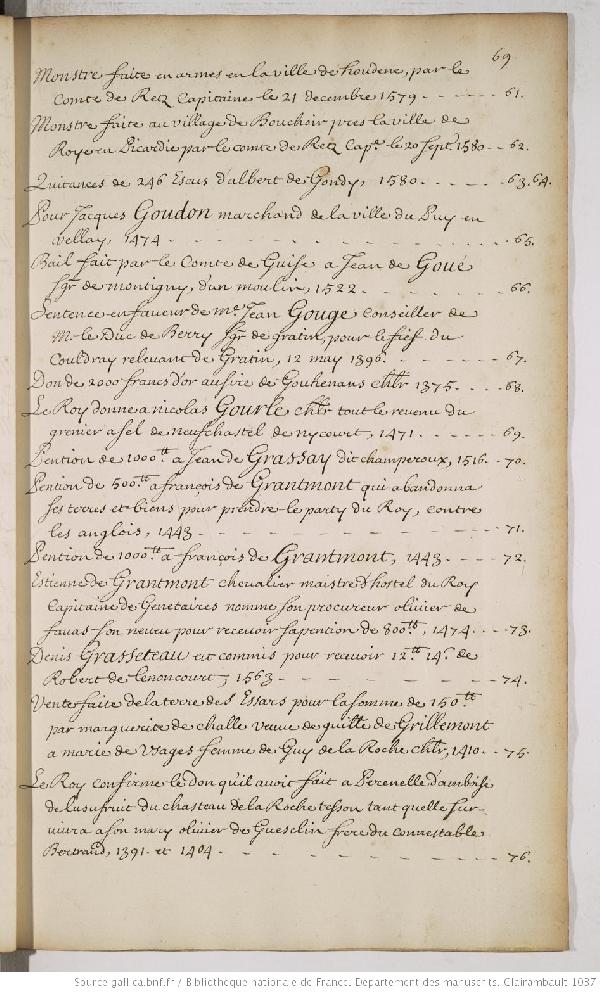 69
Monstre faite en armes en la ville de houdenc, par le
Comte de Retz Capitaine le 21 decembre 1579 - - - - - - 61.
Monstre faite au village de Bouchoir pres la ville de
Roye en Picardie par le comte de Retz Cap.ne le 20 sept.e 1580 - - 62.
Quitances de 246 Escus d'albert de Gondy, 1580 - - - - - 63.64.
Pour Jacques Goudon marchand de la ville du Puy en
vellay, 1474 - - - - - - - - - - 65.
Bail fait par le Comte de Guise a Jean de Goué
sgr. de montigny, d'un moulin, 1522 - - - - - - 66.
Sentence en faueur de me. Jean Gouge Conseiller de
Mr. le Duc de Berry sgr. de gratin, pour le fief du
Couldray releuant de Gratin, 12 may 1396 - - - - - - 67.
Don de 2000 francs d'or au sire de Gouhenans chlr 1375 - - - - 68.
Le Roy donne a nicolas Gourle chlr tout le reuenu du
grenier a sel de neufchastel de nycourt, 1471 - - - - - 69.
Pention de 1000tt a Jean de Grassay dit champeroux, 1516 - - 70.
Pention de 500tt a françois de Grantmont qui abandonna
ses terres et biens pour prendre le party du Roy, contre
les anglois, 1443 - - - - - - - - - 71.
Pention de 1000tt a françois de Grantmont, 1443 - - - - 72.
Estienne de Grantmont cheualier maistre d'hostel du Roy
Capitaine de Genetaires nomme son procureur oliuier de
fauas son neueu pour receuoir sa pencion de 800tt, 1474 - - - 73.
Denis Grasseteau est commis pour receuoir 12tt 14s de
Robert de lenoncourt, 1563 - - - - - - - 74.
Vente faite de la terre des Essars pour la somme de 150tt
par marguerite de challe veuue de guill.e de Grillemont
a marie de Usages femme de Guy de la Roche chlr, 1410 - - 75.
Le Roy confirme le don qu'il auoit fait a Perenelle d'amboise
de l'usufruit du chasteau de la Roche tesson tant quelle sur-
viura a son mary oliuier de Guesclin frere du connestable
Bertrand, 1391 et 1404 - - - - - - - - - 76.
Source gallica.bnf.fr / Bibliothèque nationale de France. Département des manuscrits. Clairambault 1037